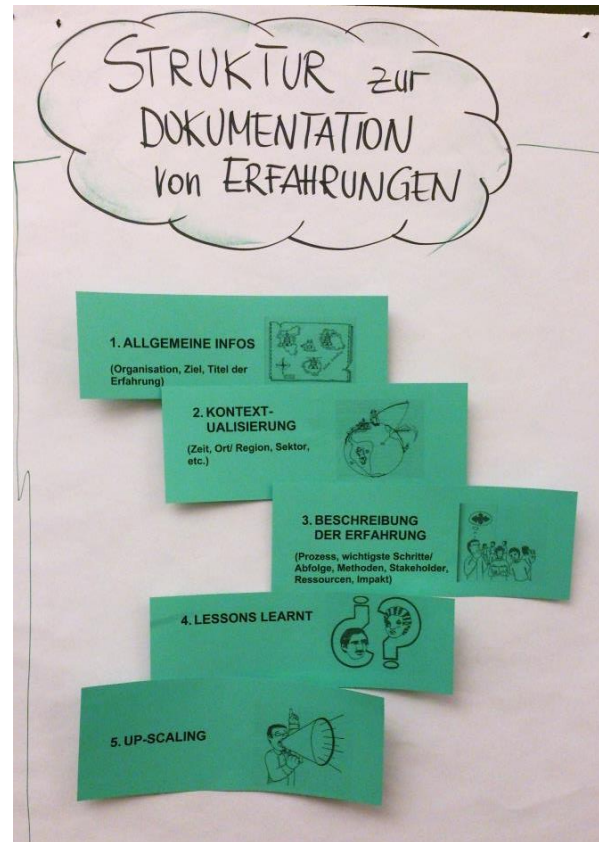 STRUKTUR zur
DOKUMENTATION
von ERFAHRUNGEN
1. ALLGEMEINE INFOS
(Organisation, Ziel, Titel der
Erfahrung)
2. KONTEXT-
UALISIERUNG
(Zeit, Ort/ Region, Sektor,
etc.)
3. BESCHREIBUNG
DER ERFAHRUNG
(Prozess, wichtigste Schritte/
Abfolge, Methoden, Stakeholder,
Ressourcen, Impakt)
4. LESSONS LEARNT
5. UP-SCALING